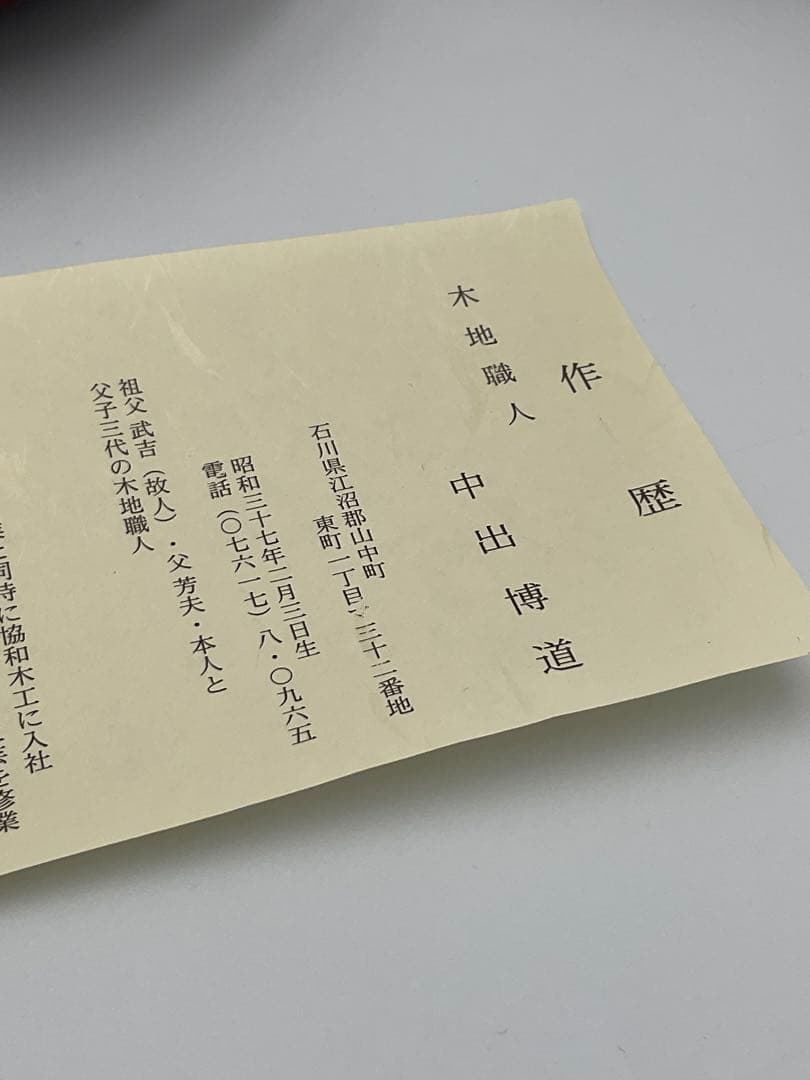 作歴
木地職人 中出博道
石川県江沼郡山中町
東町一丁目 三十二番地
昭和三十七年二月三日生
電話(〇七六一七)八・〇九六五
祖父 武吉(故人)・父 芳夫・本人と
父子三代の木地職人
同時に協和木工に入社
を修業